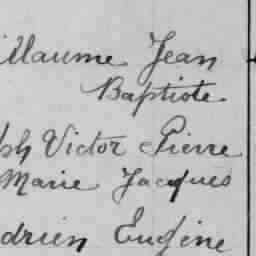 illaume Jean
Baptiste
ph Victor Pierre
Marie Jacques
drien Eugène